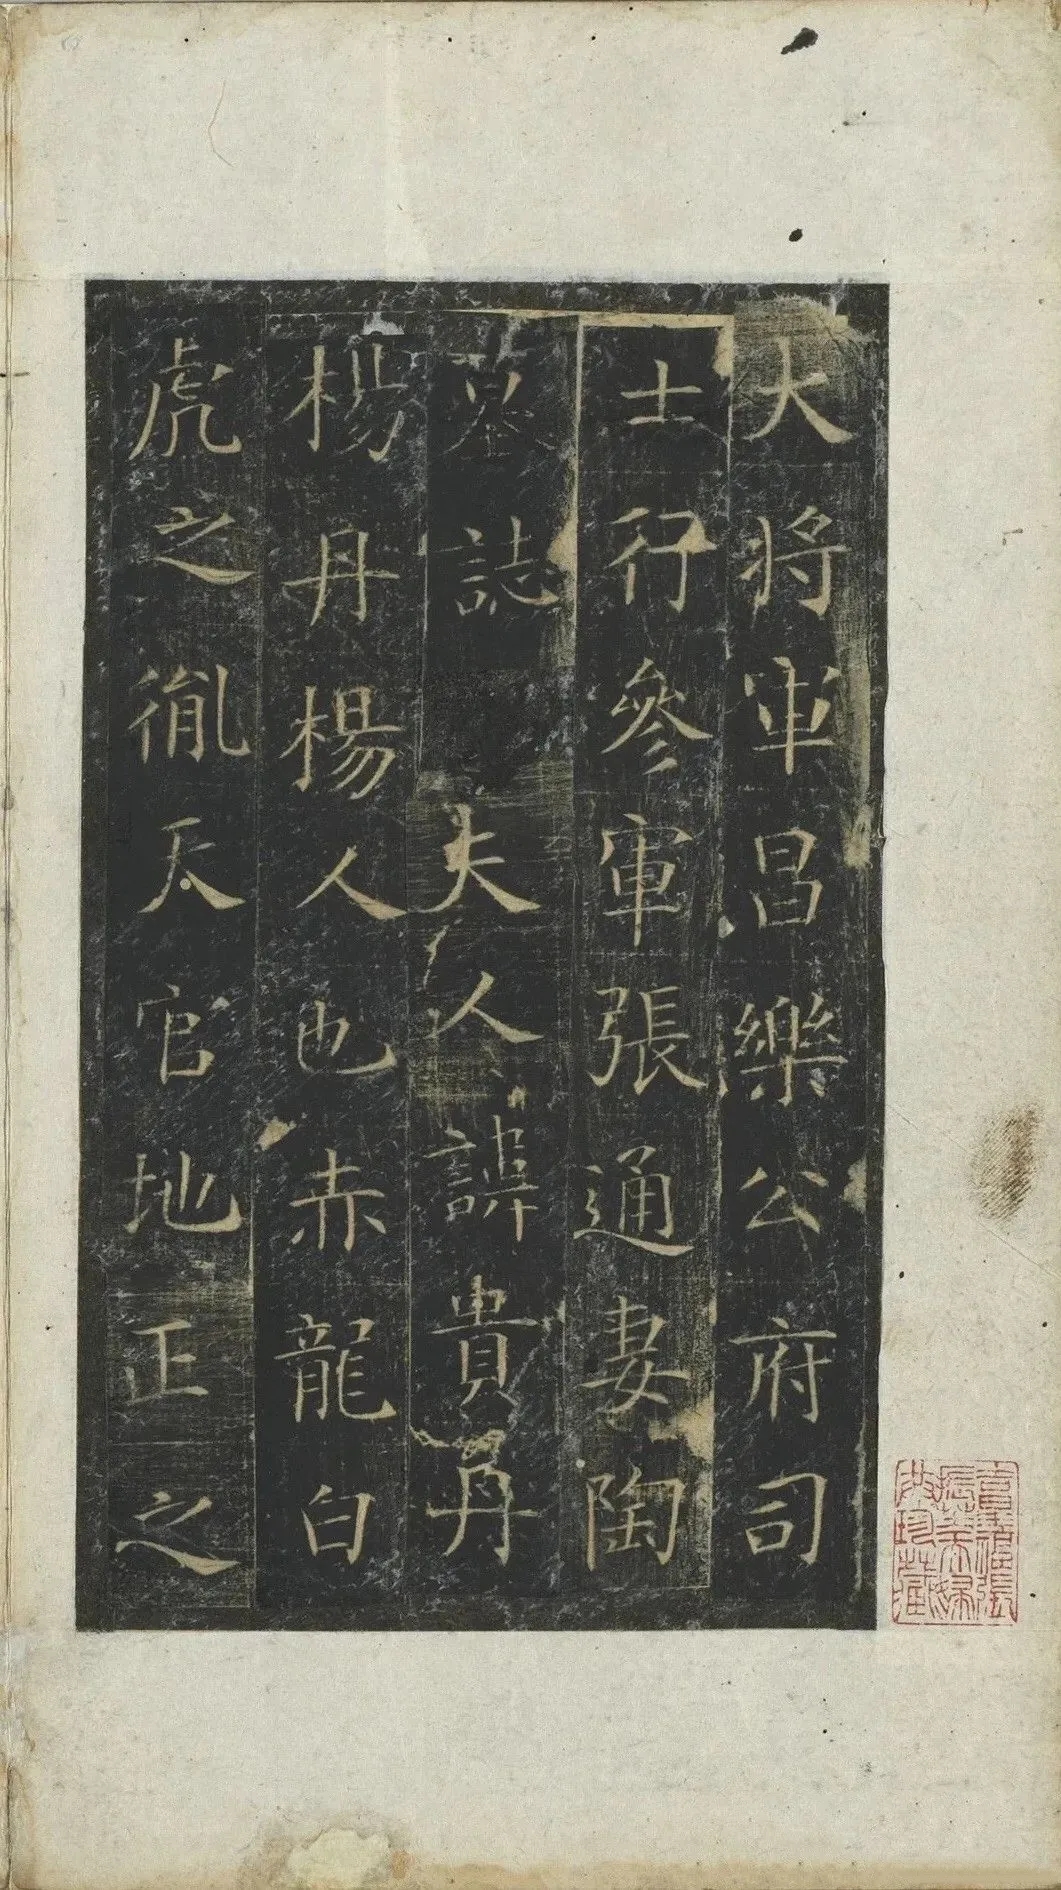 大將軍昌樂公府司
士行參軍張通妻陶
墓誌　夫人諱貴丹
楊丹楊人也赤龍白
虎之胤天官地正之